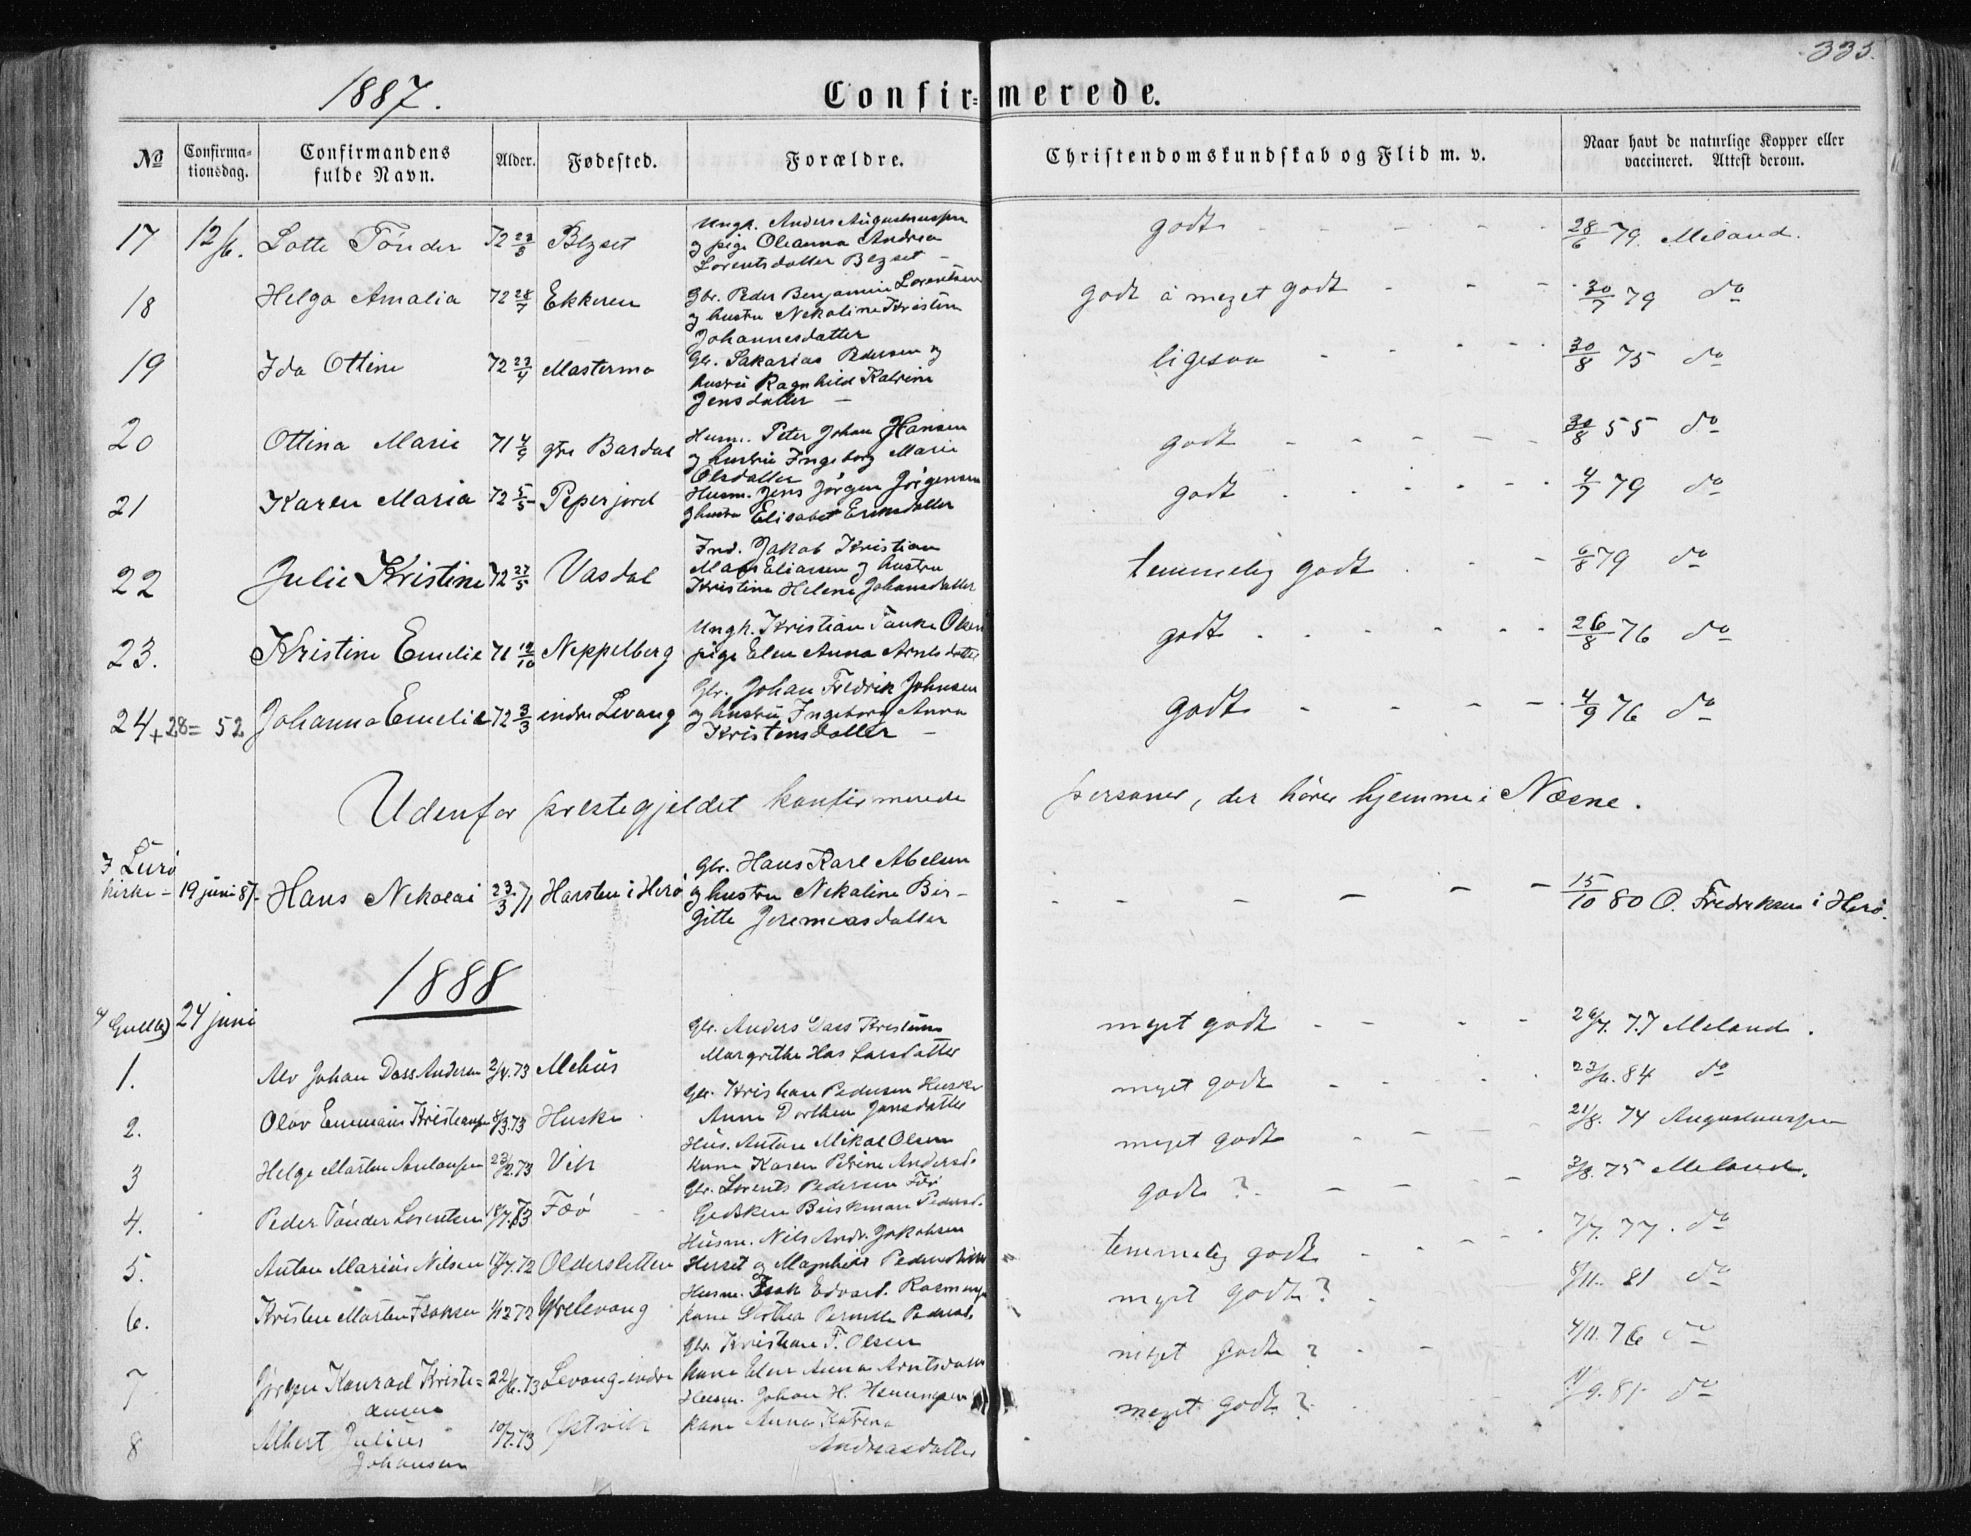 335.
1887.
Confir=merede.
No
Confirma-
tionsdag.
Confirmandens
fulde Navn.
Alder.
Fødested.
Forældre.
Christendomskundskab og Flid m. v.
Naar havt de naturlige Kopper eller
vaccineret. Attest derom.
17 12/6. Lotte Tønder 72 Blzset
Ungk. Anders Augustinussen
og pige Oleanna Andrea
Lorentsdatter Blzset -
godt - - - - - 28/6 79. Meland.
18 Helga Amalia 72 Ekkeren
Gbr. Peder Benjamin Lorentsen
og hustru Nekoline Kristine
Johannesdatter
godt à meget godt - - - 30/7 79 do
19 Ida Ottine 72 Mastermo
Gbr. Sakarias Pedersen og
hustru Ragnhild Katrine
Jensdatter -
ligesaa - - - - 30/8 75 do
20 Ottina Marie 71 ytre Bardal
Husm. Peter Johan Hansen
og hustru Ingeborg Marie
Olsdatter
godt - - - - - 30/8 55 do
21 Karen Maria 72 5/5 Peperjord
Husm. Jens Jørgen Jørgensen
og hustru Elisabet Eriksdatter
godt - - - - - 4/7 79 do
22 Julie Kristine 72 27/5 Vasdal
Ind. Jakob Kristian
Eliasen og hustru
Kristine Helene Johansdatter
temmelig godt - - - 6/8 79 do
23. Kristine Emelie 71 Neppelberg
Ungk. Kristian Tanke Olsen
pige Elen Anna Arntsdatter
godt - - - - - 26/8 76 do
24+28=52 Johanna Emelie 72 3/3 indre Levang
Gbr. Johan Fredrik Johnsen
og hustru Ingeborg Anna
Kristensdatter -
godt - - - - 4/9 76 do
Udenfor prestegjeldet konfirmerede personer, der hører hjemme i Næsne.
I Lurø
kirke - 19 juni 87. Hans Nekolai 23/3 71 Harsten i Herø
Gbr. Hans Karl Abelsen
og hustru Nekoline Bir-
gitte Jeremiasdatter
- - - - - - 15/10 80 O. Fredriksen i Herø.
1888
24 juni
1. Alv Johan Dass Andersen 2/4.73 Mehus
Gbr. Anders Dass Kristens
Margrethe Has Larsdatter
meget godt - - - - 26/7. 77 Meland.
2. Olav Emmanius Kristiansen 8/3.73 Huske
Gbr. Kristian Pedersen Huske
Anne Dorthea Jansdatter
meget godt - - - - 23/6. 84 do
3 Helge Morten Antonsen 23/2.73 Vik
Hus. Anton Mikal Olsen
kone Karen Petrine Andersd.
meget godt - - - - 21/8. 74 Augustinussen
4. Peder Tønder Lorentsen 73 Færø
Gbr. Lorents Pedersen
Pedersd.
godt? - - - - 3/8. 75 Meland.
5. Anton Marius Nilsen 17/7.72 Oldersletten
Husm. Nils Andr. Jakobsen
Herset og
temmelig godt - - - - 7/7. 77. do
6. Kristen Morten Isaksen 1/12 72 Ytre Levang
Husm. Isak Edvard. Rasmussen
kone Dorthea Pernille Pedersd.
meget godt? - 8/11. 81 do
7 Jørgen Konrad Kristi=
ansen
22/6.73 Levang-indre
Gbr. Kristian T. Olsen
kone Elen Anna Arntsdatter
meget godt? - - - 4/11. 76 do
8 Albert Julius
Johansen
10/7.73
Husm. Johan H. Henningsen
kone Anna Katrina
Andreasdatter
meget godt? - - - 9. 81 do